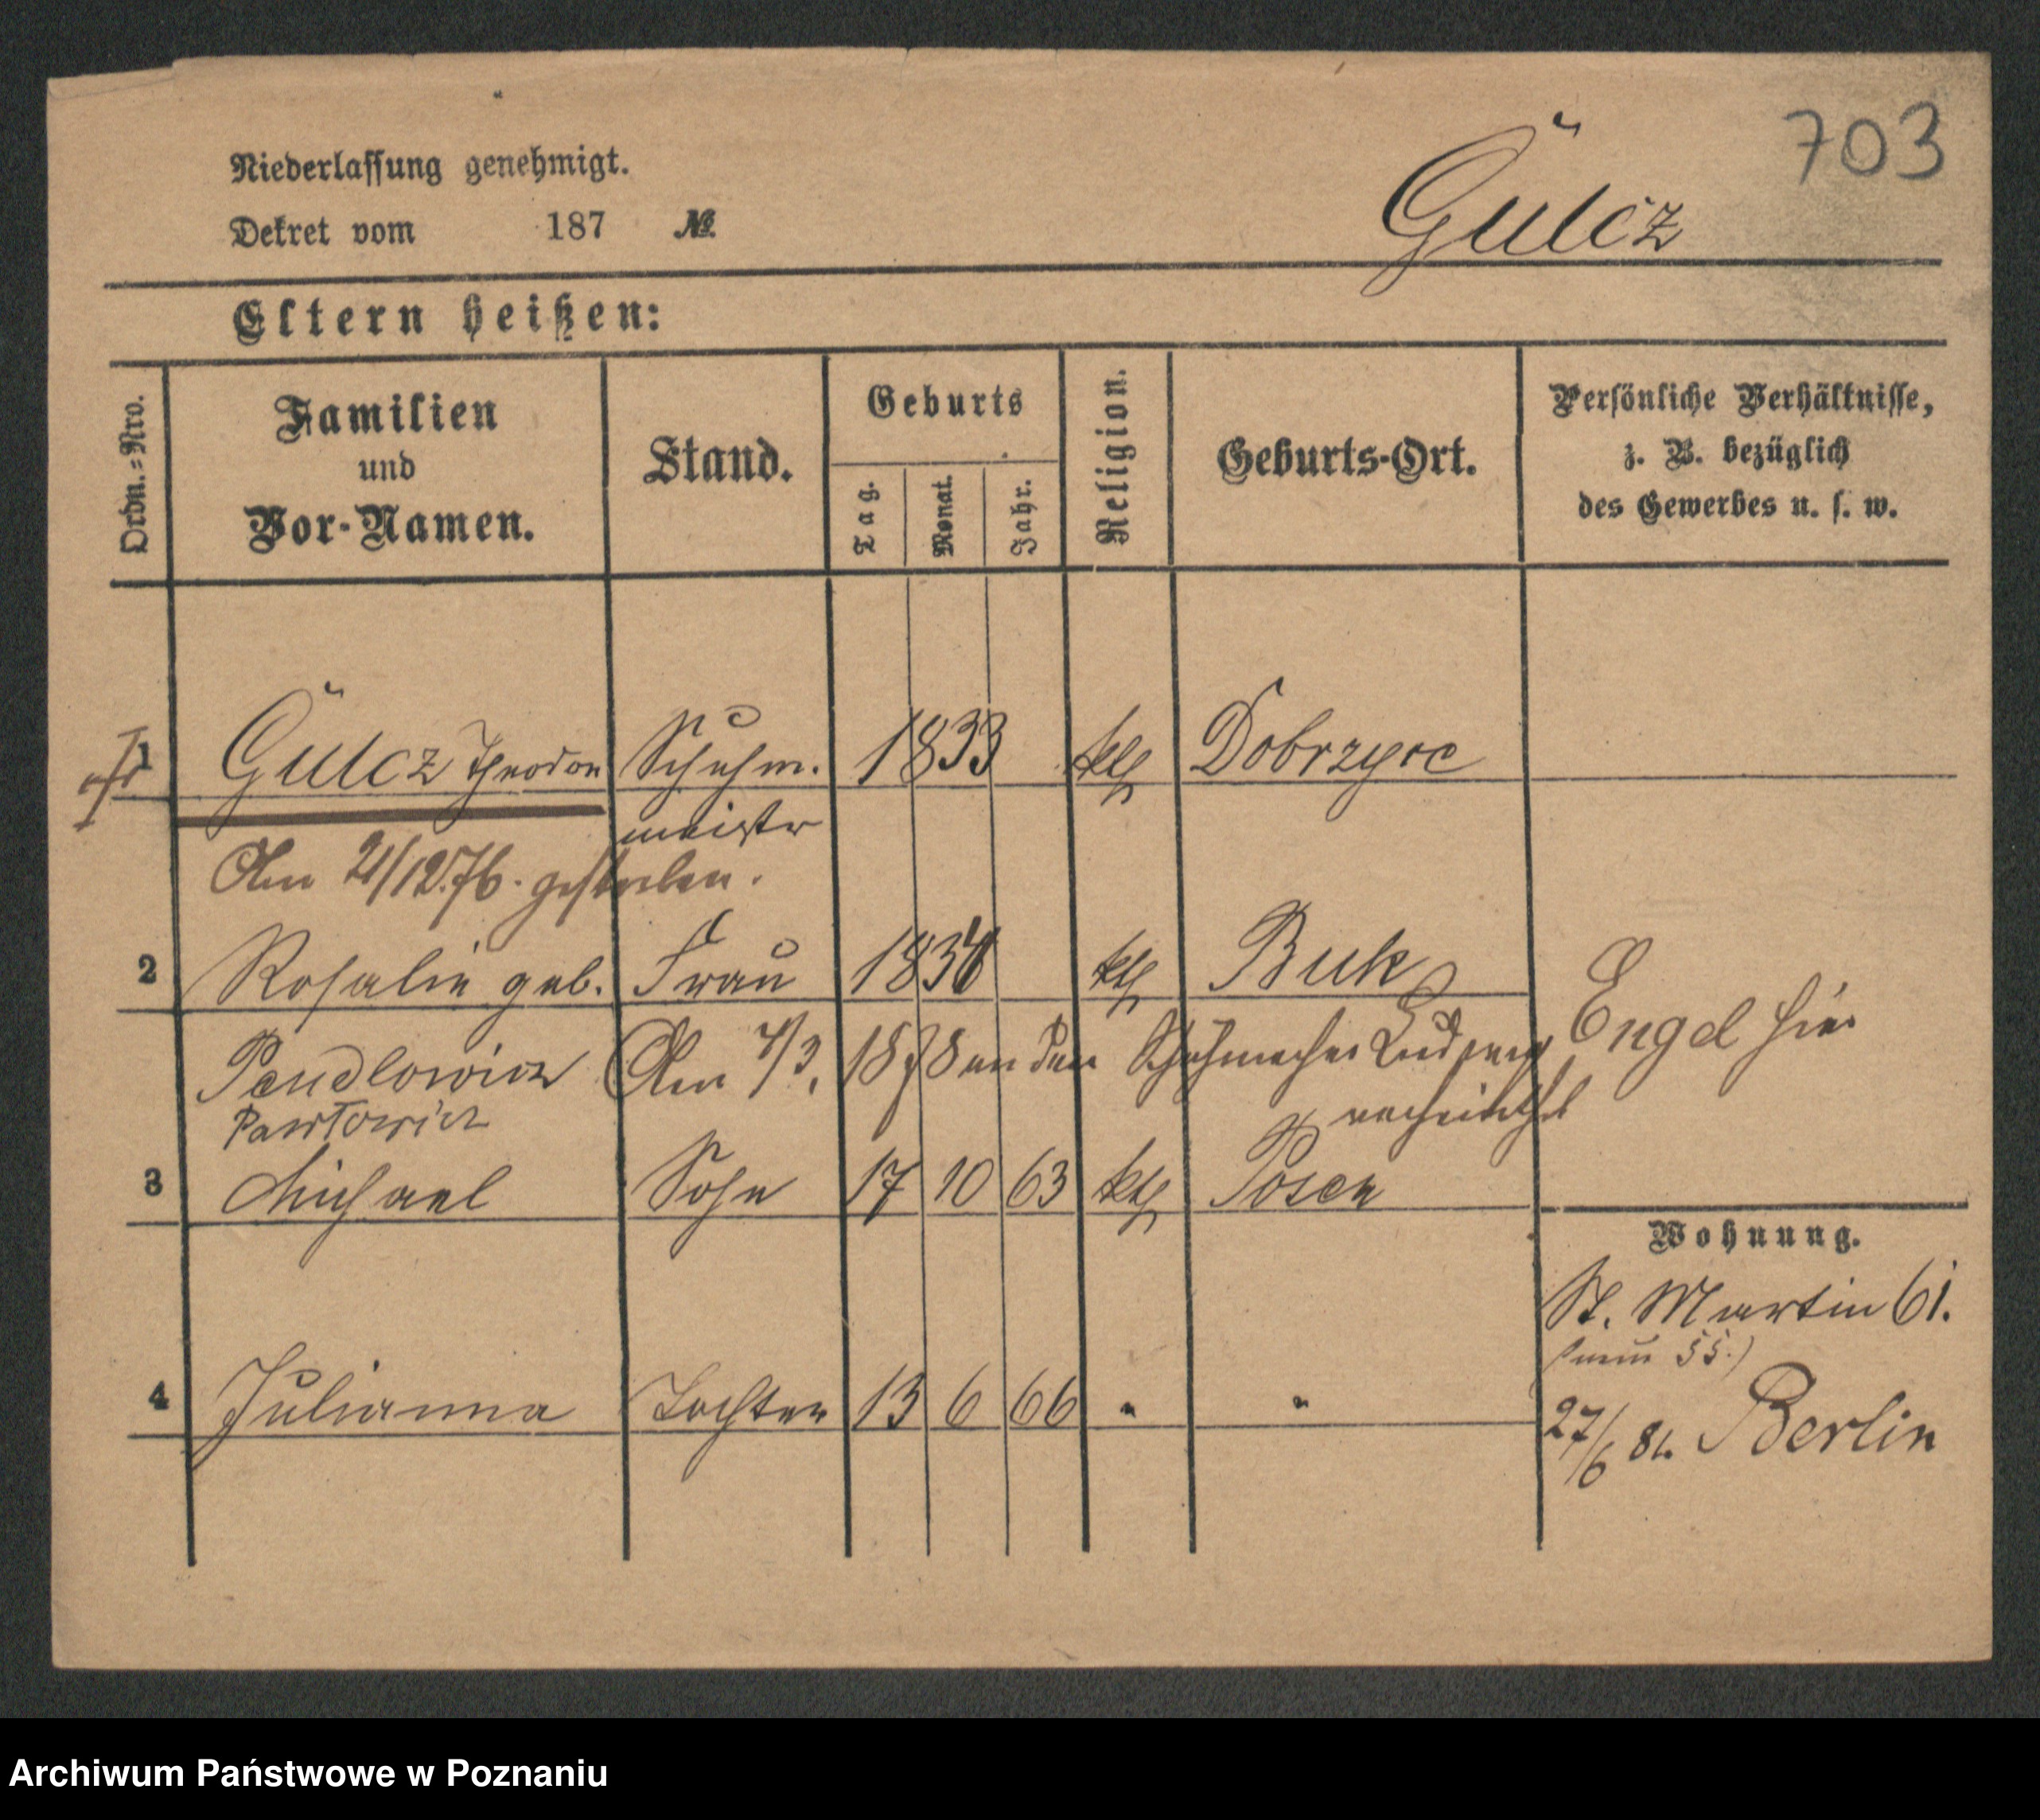 703
Niederlassung genehmigt.
Gülcz
Dekret vom 187 №
Eltern heißen:
Ordn.=Nro.
Familien und Vor-Namen.
Stand.
Geburts
Tag. Monat. Jahr.
Religion.
Geburts-Ort.
Persönliche Verhältnisse,
z. B. bezüglich
des Gewerbes u. s. w.
1 Gülcz Theodor Schuhm. 1833 kth Dobrzyce
meister
Am 21/12.76. gestorben.
2 Rosalie geb. Frau 183 kth Buk
Pendlowicz Am 4/3. 1878 an den Schuhmacher Ludwig Engel hier
Pawłowicz verheirathet
3 Michael Sohn 17 10 63 kth Posen
Wohnung.
St. Martin 61.
(neu 55.)
4 Julianna Tochter 13 6 66 " "
27/6 81. Berlin
Archiwum Państwowe w Poznaniu